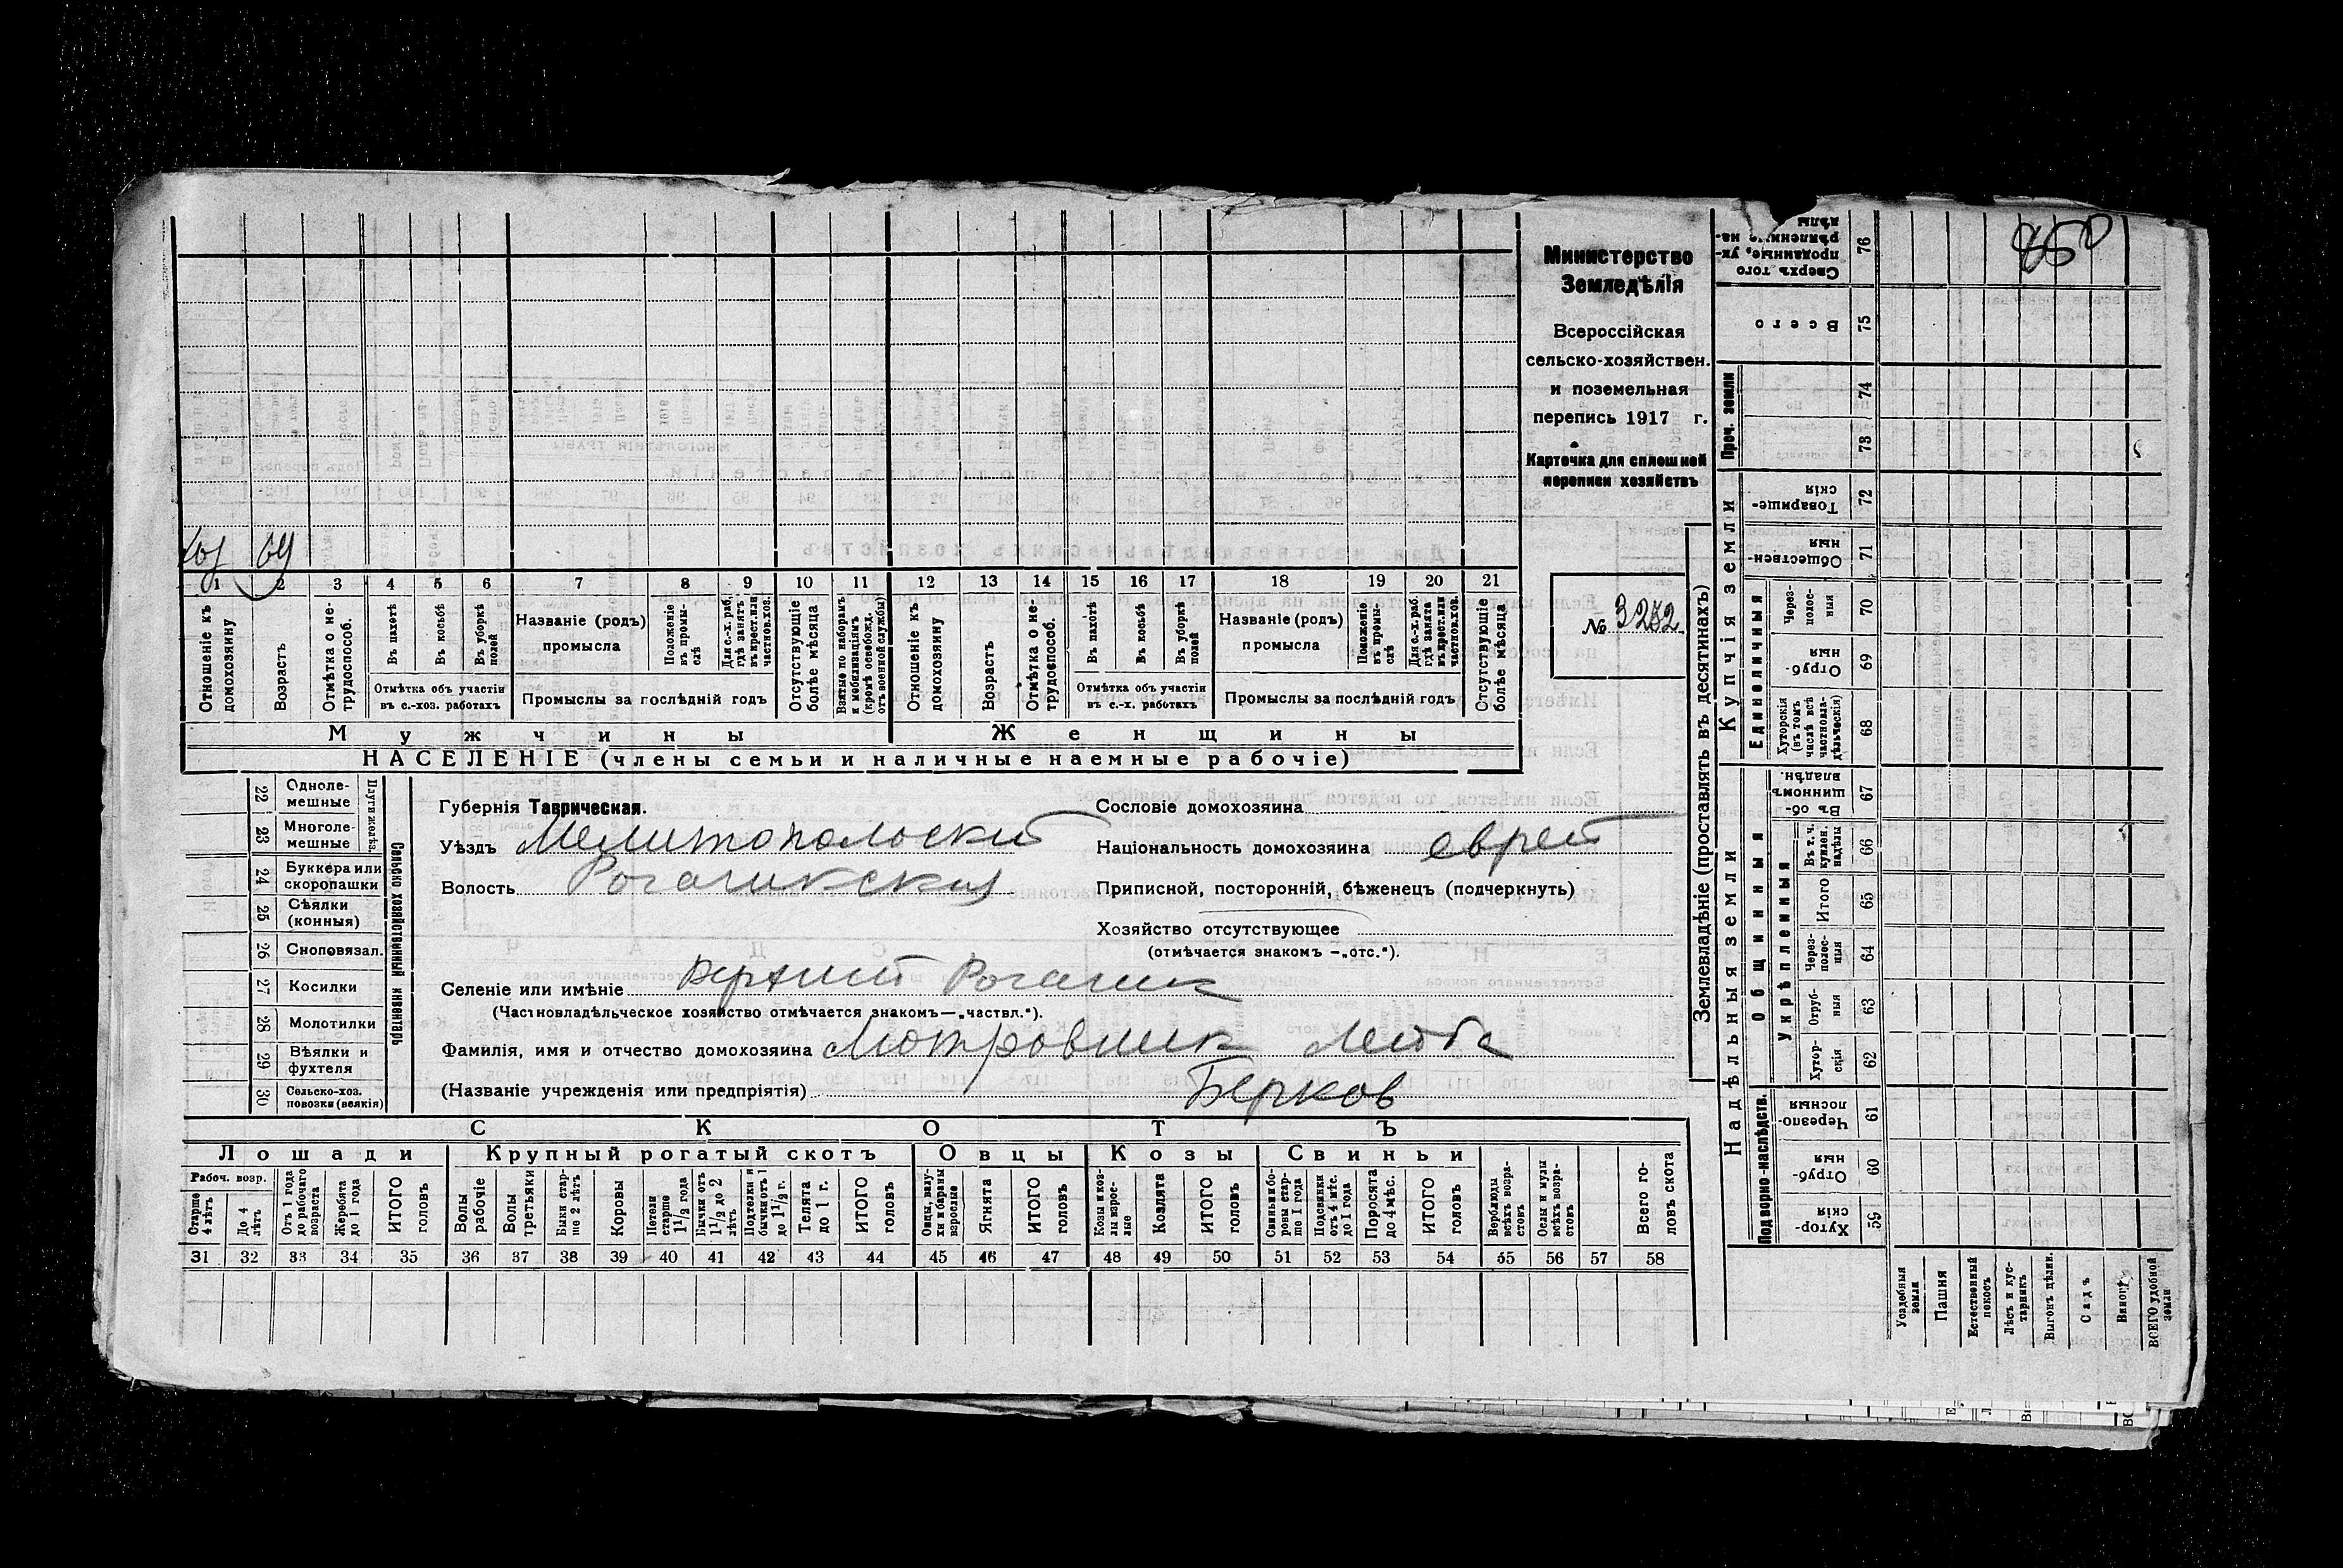 Министерство
Земледѣлія
Всероссійская
сельско-хозяйствен.
и поземельная
перепись 1917 г.
Карточка для сплошной
переписи хозяйствъ
№ 3252
850
хоз 64
1 2 3 4 5 6 7 8 9 10 11 12 13 14 15 16 17 18 19 20 21
Отношеніе къ домохозяину
Возрастъ
Отмѣтка о нетрудоспособ.
Въ пахотѣ
Въ косьбѣ
Въ уборкѣ полей
Отмѣтка объ участіи въ с.-хоз. работахъ
Названіе (родъ) промысла
Положеніе въ промыслѣ
Для с.-х. раб. гдѣ занятъ въ крест. или частнов. хоз.
Промыслы за послѣдній годъ
Отсутствующіе болѣе мѣсяца
Взятые по наборамъ и мобилизаціямъ (кромѣ освобожд. отъ военной службы)
Отношеніе къ домохозяину
Возрастъ
Отмѣтка о нетрудоспособ.
Въ пахотѣ
Въ косьбѣ
Въ уборкѣ полей
Отмѣтка объ участіи въ с.-х. работахъ
Названіе (родъ) промысла
Положеніе въ промыслѣ
Для с.-х. раб. гдѣ занята въ крест. или частнов. хоз.
Промыслы за послѣдній годъ
Отсутствующіе болѣе мѣсяца
Мужчины Женщины
НАСЕЛЕНІЕ (члены семьи и наличные наемные рабочіе)
22 Однолемешные
23 Многолемешные
Плуги желѣз.
24 Буккера или скоропашки
25 Сѣялки (конныя)
26 Сноповязал.
27 Косилки
28 Молотилки
29 Вѣялки и фухтеля
30 Сельско-хоз. повозки (всякія)
Сельско хозяйственный инвентарь
Губернія Таврическая.
Уѣздъ Мелитопольский
Волость Рогачикская
Сословіе домохозяина
Національность домохозяина еврей
Приписной, посторонній, бѣженецъ (подчеркнуть)
Хозяйство отсутствующее
(отмѣчается знакомъ —„отс.“).
Селеніе или имѣніе Верхний Рогачик
(Частновладѣльческое хозяйство отмѣчается знакомъ—„частвл.“).
Фамилія, имя и отчество домохозяина Лейба
(Названіе учрежденія или предпріятія) Берков
СКОТЪ
Лошади Крупный рогатый скотъ Овцы Козы Свиньи
Рабоч. возр.
Старше 4 лѣтъ
До 4 лѣтъ
Отъ 1 года до рабочаго возраста
Жеребята до 1 года
ИТОГО головъ
Волы рабочіе
Волы третьяки
Быки старше 2 лѣтъ
Коровы
Нетели старше 1 1/2 года
Бычки отъ 1 1/2 до 2 лѣтъ
Подтелки и бычки отъ 1 до 1 1/2 г.
Телята до 1 г.
ИТОГО головъ
Овцы, валухи и бараны взрослые
Ягнята
ИТОГО головъ
Козы и козлы взрослые
Козлята
ИТОГО головъ
Свиньи и боровы старше 1 года
Подсвинки отъ 4 мѣс. до 1 года
Поросята до 4 мѣс.
ИТОГО головъ
Верблюды всѣхъ возрастовъ
Ослы и мулы всѣхъ возрастовъ
Всего головъ скота
31 32 33 34 35 36 37 38 39 40 41 42 43 44 45 46 47 48 49 50 51 52 53 54 55 56 57 58
Землевладѣніе (проставлять въ десятинахъ)
Надѣльныя земли Купчія земли Проч. земли
Подворно-наслѣдств.
Общинныя
Укрѣпленныя
Единоличныя
76 Сверхъ того проданные, укрѣпленные надѣлы
75 Всего
74
73
72 Товарищескія
71 Общественныя
70 Черезполосныя
69 Отрубныя
68 Хуторскія (въ томъ числѣ всѣ частновладѣльческія)
67 Въ общинномъ владѣн.
66 Въ т. ч. куплен. надѣлы
65 Итого
64 Черезполосныя
63 Отрубныя
62 Хуторскія
61 Черезполосныя
60 Отрубныя
59 Хуторскія
Усадебныя земли
Пашня
Естественный покосъ
Лѣсъ и кустарникъ
Выгонъ цѣлин.
Садъ
ВСЕГО удобной земли